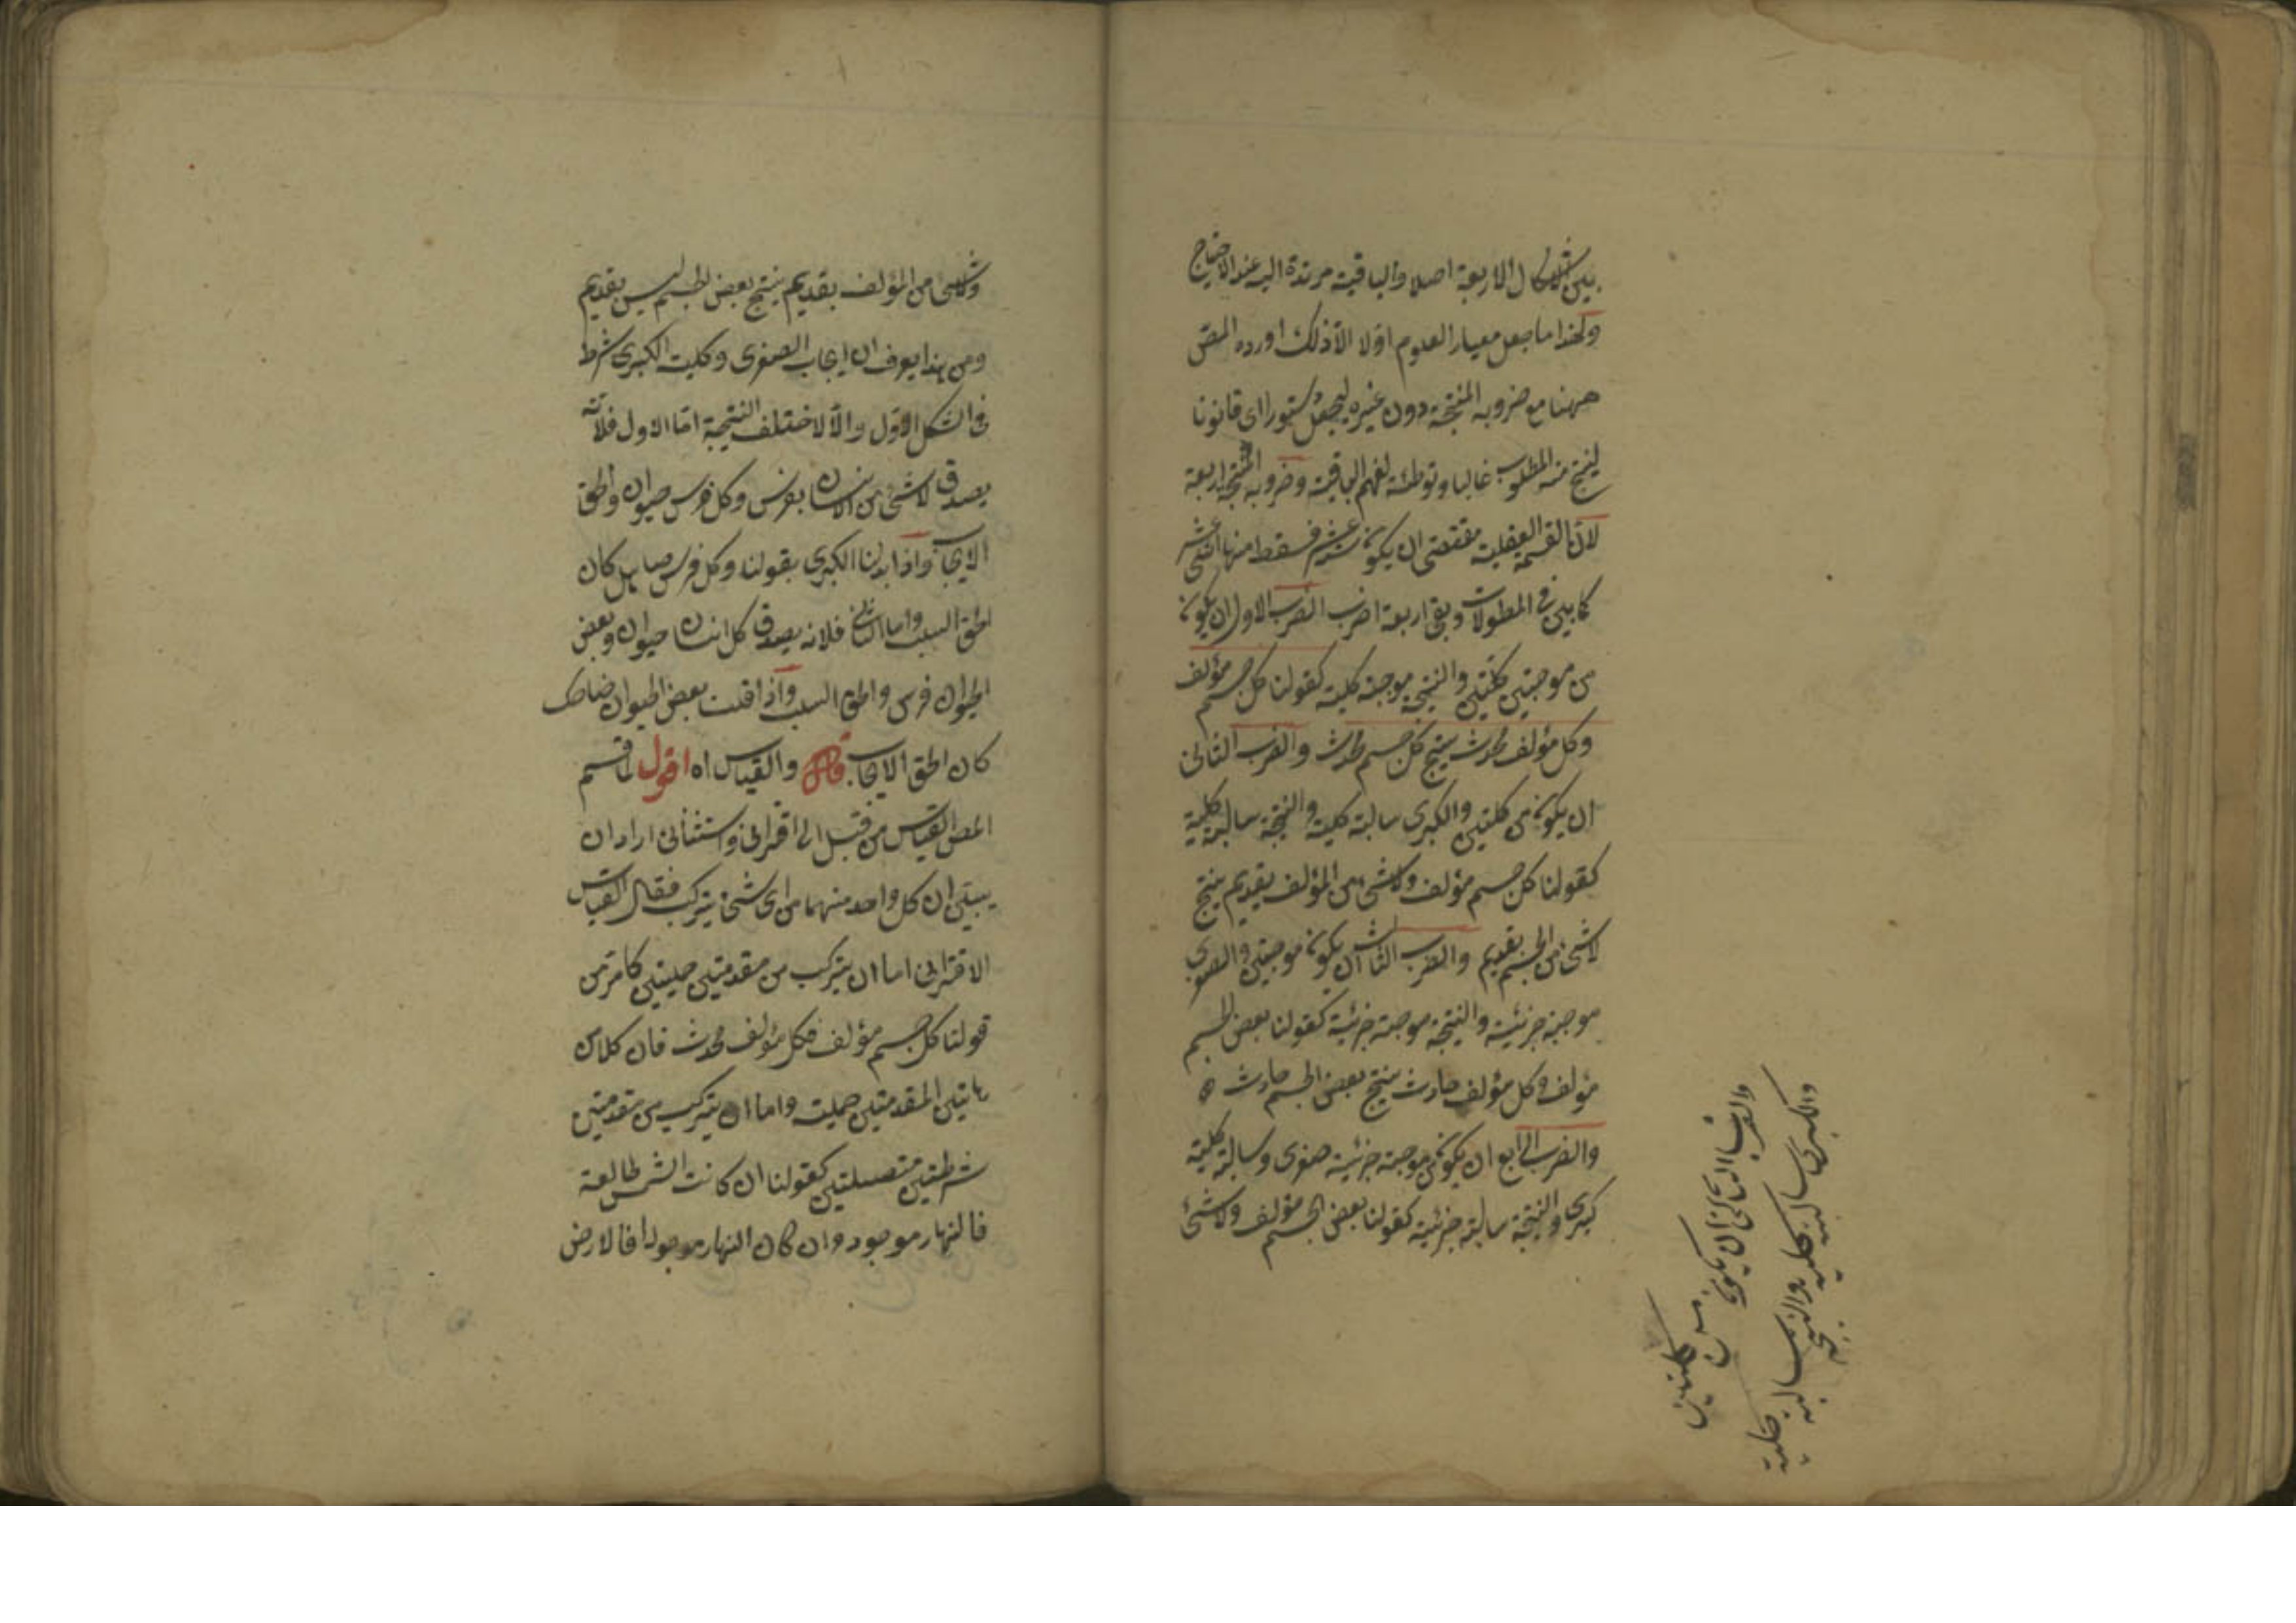 بين الاشكال الاربعة اصلا والباقية مرتدة اليه عند الاحتياج
ولهذا ما جعل معيار العلوم اولا الا ذلك اورده المص
ههنا مع ضروبه المنتجة دون غيره ليجعل دستورا اى قانونا
لينتج منه المطلوب غالبا وتوطئة لفهم الباقية وضروبه المنتجة اربعة
لان القسمة العقلية مقتضى ان يكون عشر فسقط منها اثنى عشر
كما بين فى المطولات وبقى اربعة اضرب الضرب الاول ان يكون
من موجبتين كليتين والنتيجة موجبة كلية كقولنا كل جسم مؤلف
وكل مؤلف محدث ينتج كل جسم محدث والضرب الثانى
ان يكون من كليتين والكبرى سالبة كلية والنتيجة سالبة كلية
كقولنا كل جسم مؤلف ولا شئ من المؤلف بقديم ينتج
لا شئ من الجسم بقديم والضرب الثالث ان يكون موجبتين والصغرى
موجبة جزئية والنتيجة موجبة جزئية كقولنا بعض الجسم
مؤلف وكل مؤلف حادث ينتج بعض الجسم حادث
والضرب الرابع ان يكون من موجبة جزئية صغرى وسالبة كلية
كبرى والنتيجة سالبة جزئية كقولنا بعض الجسم مؤلف ولا شئ
والضرب الثانى ان يكون من كليتين
والكبرى سالبة كلية والنتيجة سالبة كلية
ولا شئ من المؤلف بقديم ينتج بعض الجسم ليس بقديم
ومن هذا يعرف ان ايجاب الصغرى وكلية الكبرى شرط
فى الشكل الاول والا لاختلف النتيجة اما الاول فلانه
يصدق لا شئ من الانسان بفرس وكل فرس حيوان والحق
الايجاب واذا بدلنا الكبرى بقولنا وكل فرس صاهل كان
الحق السلب واما الثانى فلانه يصدق كل انسان حيوان وبعض
الحيوان فرس والحق السلب واذا قلت بعض الحيوان ضاحك
كان الحق الايجاب قال والقياس اه اقول لما قسم
المص القياس من قبل الى اقترانى واستثنائى اراد ان
يبين ان كل واحد منهما من اى شئ يتركب فقال القياس
الاقترانى اما ان يتركب من مقدمتين حمليتين كما مر من
قولنا كل جسم مؤلف فكل مؤلف محدث فان كلا من
هاتين المقدمتين حملية واما ان يتركب من مقدمتين
شرطيتين متصلتين كقولنا ان كانت الشمس طالعة
فالنهار موجود وان كان النهار موجودا فالارض